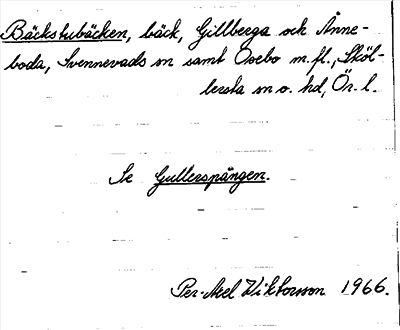 Bäckstubäcken, bäck, Gillberga och Ånne-
boda, Svennevads sn samt Osebo m.fl., Sköl-
lersta sn o. hd, Ör. l.
Se Gullerspången.
Per-Axel Wiktorsson 1966.